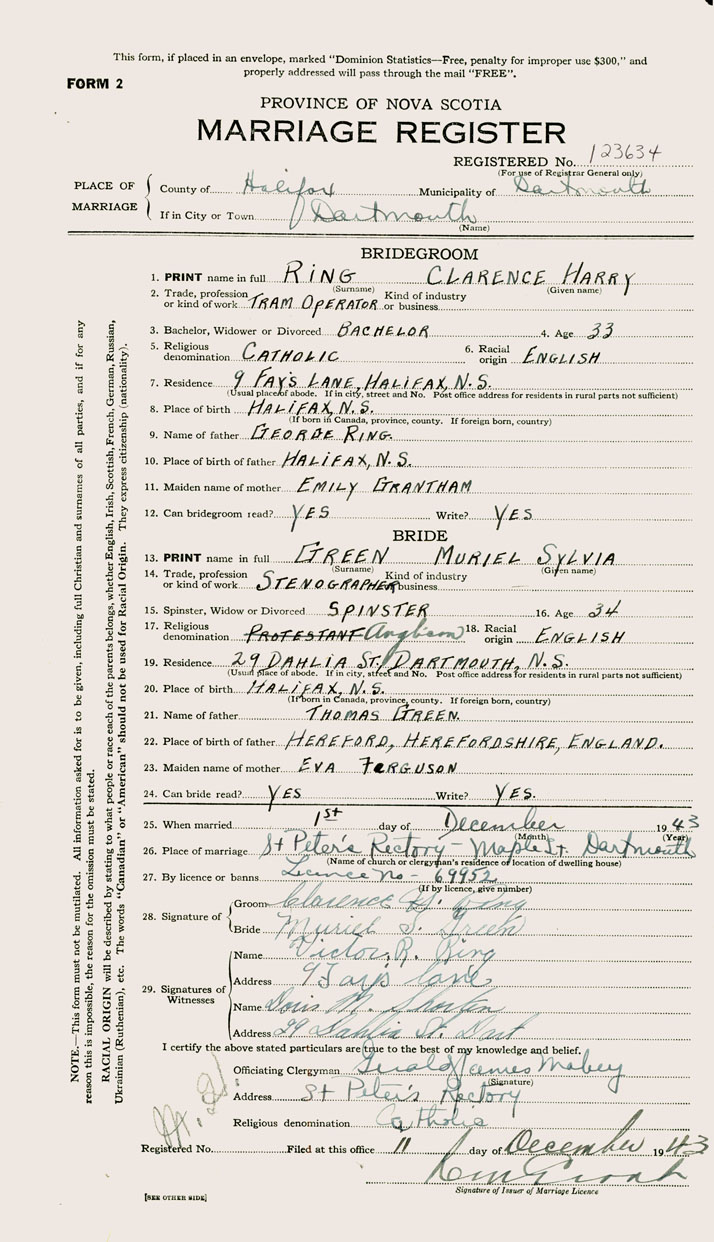 This form, if placed in an envelope, marked "Dominion Statistics—Free, penalty for improper use $300," and
properly addressed will pass through the mail "FREE".
FORM 2
PROVINCE OF NOVA SCOTIA
MARRIAGE REGISTER
REGISTERED No. 123634
(For use of Registrar General only)
PLACE OF MARRIAGE
County of Halifax Municipality of Dartmouth
If in City or Town Dartmouth
(Name)
BRIDEGROOM
1. PRINT name in full RING CLARENCE HARRY
(Surname) (Given name)
2. Trade, profession or kind of work TRAM OPERATOR Kind of industry or business
3. Bachelor, Widower or Divorced BACHELOR 4. Age 33
5. Religious denomination CATHOLIC 6. Racial origin ENGLISH
7. Residence 9 FAY'S LANE, HALIFAX, N.S.
(Usual place of abode. If in city, street and No. Post office address for residents in rural parts not sufficient)
8. Place of birth HALIFAX, N.S.
(If born in Canada, province, county. If foreign born, country)
9. Name of father GEORGE RING.
10. Place of birth of father HALIFAX, N.S.
11. Maiden name of mother EMILY GRANTHAM
12. Can bridegroom read? YES Write? YES
BRIDE
13. PRINT name in full GREEN MURIEL SYLVIA
(Surname) (Given name)
14. Trade, profession or kind of work STENOGRAPHER Kind of industry or business
15. Spinster, Widow or Divorced SPINSTER 16. Age 34
17. Religious denomination PROTESTANT Anglican 18. Racial origin ENGLISH
19. Residence 29 DAHLIA ST. DARTMOUTH, N.S.
(Usual place of abode. If in city, street and No. Post office address for residents in rural parts not sufficient)
20. Place of birth HALIFAX, N.S.
(If born in Canada, province, county. If foreign born, country)
21. Name of father THOMAS GREEN.
22. Place of birth of father HEREFORD, HEREFORDSHIRE, ENGLAND.
23. Maiden name of mother EVA FERGUSON
24. Can bride read? YES Write? YES.
25. When married 1st day of December 1943
(Month) (Year)
26. Place of marriage St Peter's Rectory - Maple St. Dartmouth
(Name of church or clergyman's residence or location of dwelling house)
27. By licence or banns Licence No - 69952
(If by licence, give number)
28. Signature of
Groom Clarence H. Ring
Bride Muriel S. Green
29. Signatures of Witnesses
Name Victor R. Ring
Address 9 Fay's Lane
Name Doris M.
Address 29 Dahlia St. Dart
I certify the above stated particulars are true to the best of my knowledge and belief.
Officiating Clergyman Gerald James Mabey
(Signature)
Address St Peter's Rectory
Religious denomination Catholic
Registered No. Filed at this office 11 day of December 1943
Signature of Issuer of Marriage Licence
[SEE OTHER SIDE]
NOTE.—This form must not be mutilated. All information asked for is to be given, including full Christian and surnames of all parties, and if for any
reason this is impossible, the reason for the omission must be stated.
RACIAL ORIGIN will be described by stating to what people or race each of the parents belongs, whether English, Irish, Scottish, French, German, Russian,
Ukrainian (Ruthenian), etc. The words "Canadian" or "American" should not be used for Racial Origin. They express citizenship (nationality).